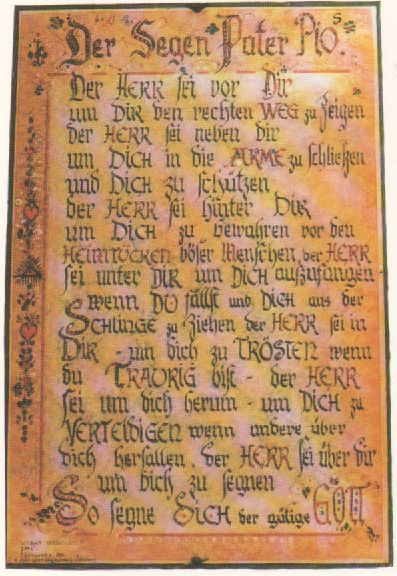 Der Segen Pater Pios.
Der HERR sei vor Dir
um DIR den rechten WEG zu zeigen
der HERR sei neben dir
um DICH in die ARME zu schließen
und DICH zu schützen
der HERR sei hinter DIR
um DICH zu bewahren vor den
HEIMTÜCKEN böser Menschen, der HERR
sei unter DIR um DICH aufzufangen
wenn DU fällst und DICH aus der
SCHLINGE zu ziehen der HERR sei in
DIR - um dich zu TRÖSTEN wenn
du TRAURIG bist - der HERR
sei um dich herum - um DICH zu
VERTEIDIGEN wenn andere über
dich herfallen. der HERR sei über dir
um dich zu segnen
So segne DICH der gütige GOTT